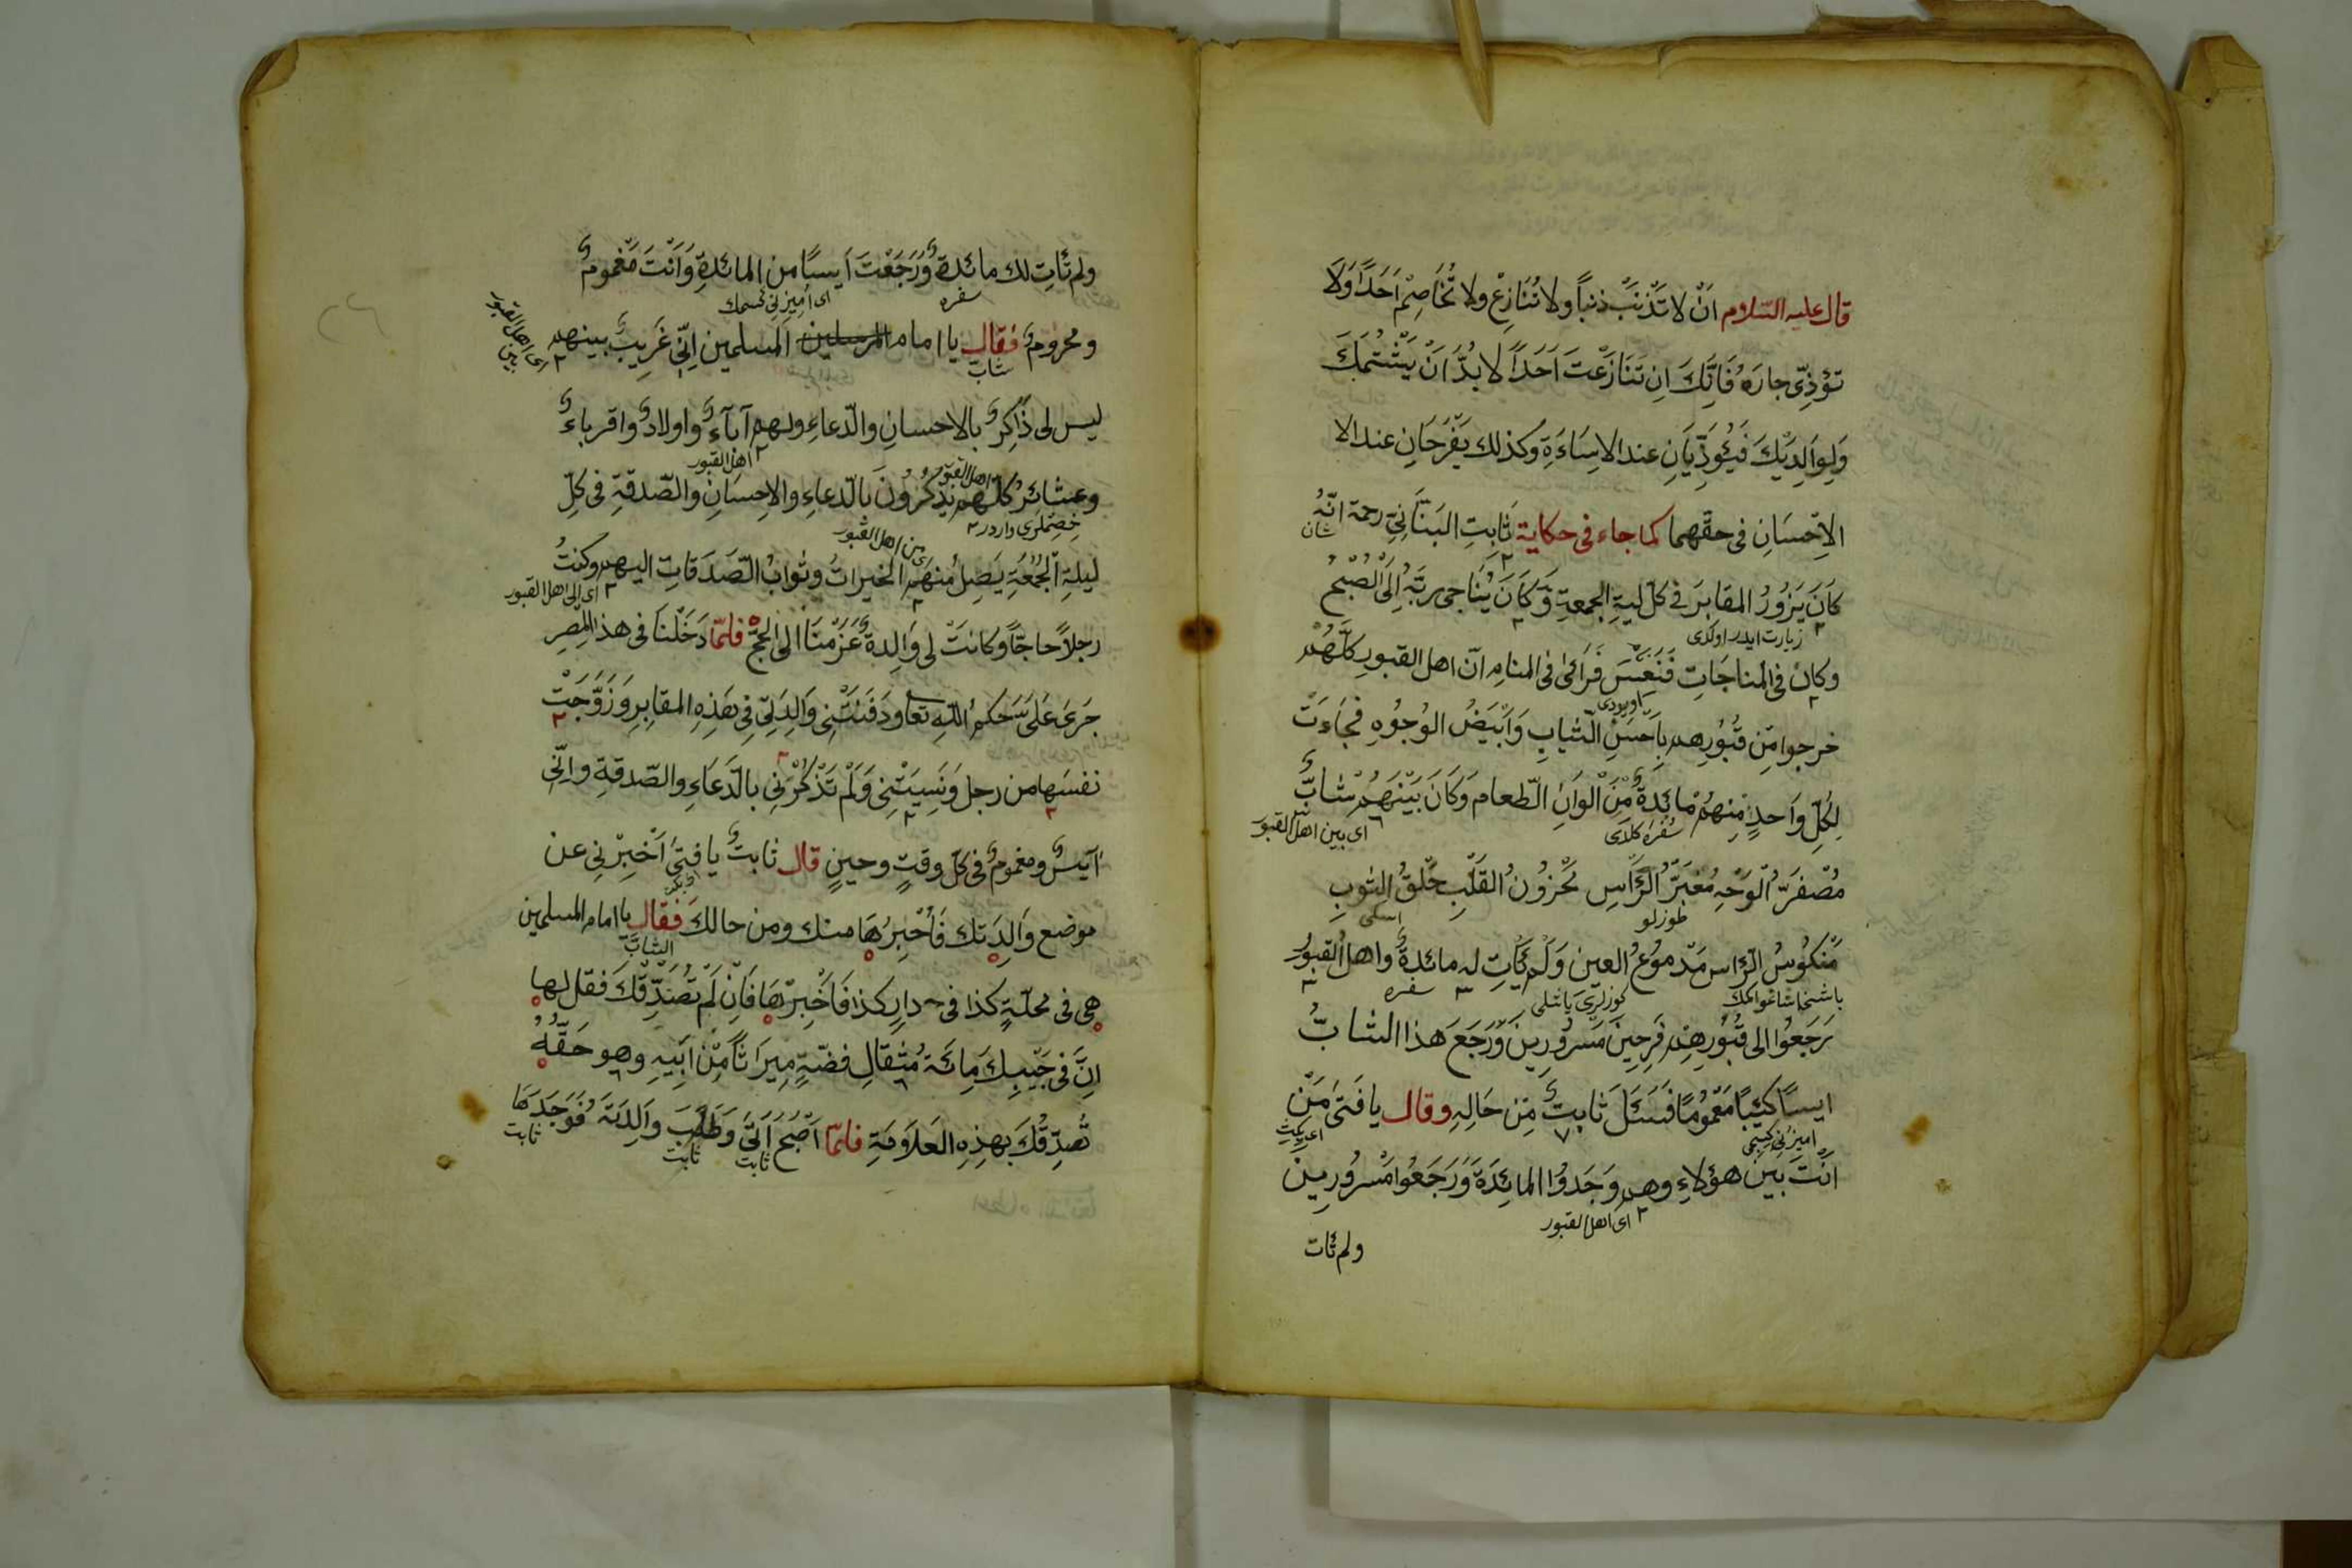 قال عليه السّلام اَنْ لا تَذْنَبَ ذنباً ولا تُنَازِعْ ولا تُخَاصِمْ اَحَداً وَلَا
تؤذِّى جارَهُ فَاِنَّكَ اِن تَنَازَعْتَ اَحَداً لا بُدَّ اَنْ يَشْتُمَكَ
وَلِوَالِدَيْكَ فَيُؤَذِّيَانِ عند الاِسَاءَةِ وكذلك يَفْرَحَانِ عند الا
الاِحْسَانِ فى حقّهما كما جاء فى حكاية ثَابِتِ البَنَّانِىّ رحمة انّهُ
شان
كَانَ يَزُورُ المقابرَ فى كلّ ليةِ الجمعةِ وَكَانَ يُنَاجِى ربَّهُ اِلَى الصُّبْحُ
زيارت ايدر اولدى
وكان فى المناجَاتِ فَنَعَسَ فَرَائ فى المنامِ انّ اهل القبورِ كلَّهُمْ
اويودى
خرجوا مِن قُبُورِهم بِاَحْسَنِ الثيابِ وَاَبْيَضُ الوُجُوهِ فجَاءَتْ
لِكُلِّ وَاَحدٍ مِنهُمْ مائدةٌ مِنْ اَلْوَانِ الطّعام وَكَانَ بَيْنَهُمْ شابٌّ
سفره كلدى
اى بين اهل القبور
مُصْفَرُّ الوَجْهِ مُغْبَرُّ الرَّاسِ مَحْزُونُ القَلْبِ خَلَقُ الثوبِ
طوزلو
اسكى
مَنْكُوسُ الرّاس مَدْمُوعُ العين وَلَمْ يَاتِ له مائدةٌ واهل القبور
سفره
يَرجَعُوا الى قُبُورِهِم فَرِحِينَ مَسرُورِينَ وَرَجَعَ هذا الشابُّ
ايسًا كئيبًا مَغْمُومًا فَسَئَلَ ثابتٌ مِن حَالِهِ وقال يا فَتَى مَنْ
اَنْتَ بين هؤلاءِ وهم وَجَدُوا المائِدَةَ وَرَجَعُوا مسْرُورِين
اى اهل القبور
ولم تَات
ولم تَاتِ لك مائدةٌ وَرَجَعْتَ اَيسًا من المائدةِ وَاَنْتَ مَغمومٌ
سفره
ومحرومٌ فقال يا امام المرسلين المسلمين اِنّى غَرِيبٌ بينهم
شاب
اى اهل القبور
بين
ليس لى ذَاكِرٌ بالاحسانِ والدّعاءِ ولهم آباءٌ واولادٌ واقرباءٌ
اهل القبور
وعشائرُ كلّهم يَذْكُرُونَ بالدّعاءِ والاِحسَانِ والصّدقةِ فى كلّ
اهل القبور
ليلةِ الجُمُعَةِ يَصِلُ مُنهَم الخيراتُ وثوابُ الصَّدَقاتِ اليهم وكنتُ
من اهل القبور
اى الى اهل القبور
رجلاً حاجّاً وكانتْ لى وَالِدةٌ عَزَمْنَا الى الحجّ فلمّا دَخَلْنَا فى هذا المِصرِ
جَرىَ عَلَىَّ حكمُ اللّهِ تعا ودَفَنَتْنِى وَالِدَتِى فِى هَذِهِ المقابِرِ وَزَوَّجَتْ
نفسَها من رجل وَنَسِيَتْنِى وَلَمْ تَذْكُرْنِى بالدَّعَاءِ والصّدقةِ واِنّى
آيَسٌ ومغمومٌ فى كلّ وقتٍ وحينٍ قال ثابتٌ يا فتىَ اَخْبِرْنِى عن
موضع وَالِدَتك فَاُخْبِرُهَا منك ومن حالك فقال يا امام المسلمين
الشابّ
هى فى محلّةٍ كذا فى دارٍ كذا فَاَخْبِرْهَا فَاِنْ لَمْ تُصَدِّقْكَ فقل لها
اِنَّ فى جَيْبِكَ مِائَة مُثقالِ فضّةٍ مِيرَاثاً مِنْ اَبِيهِ وهو حَقُّهُ
تُصَدِّقُكَ بهذِهِ العَلَامَةِ فلمّا اَصْبَحَ اَتَى وَطَلَبَ والِدَتَهُ فَوَجَدَهَا
ثابت
ثابت
ثابت